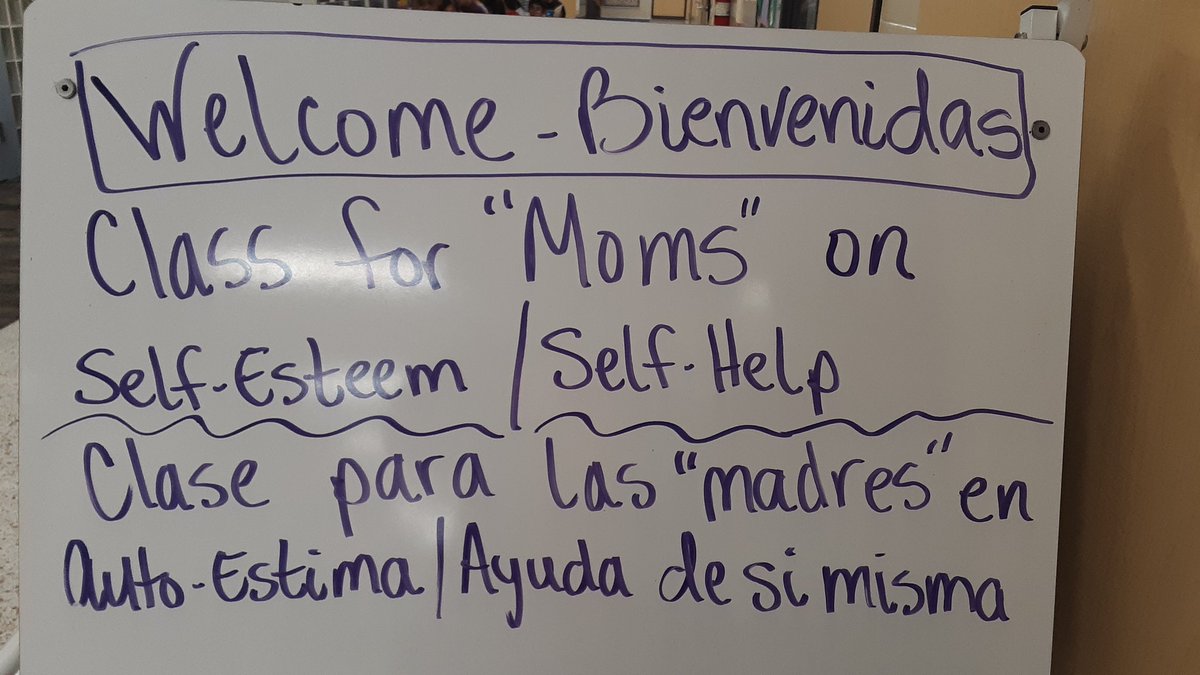 Welcome - Bienvenidas
Class for "Moms" on
Self-Esteem / Self-Help
Clase para las "madres" en
auto-Estima / Ayuda de si misma